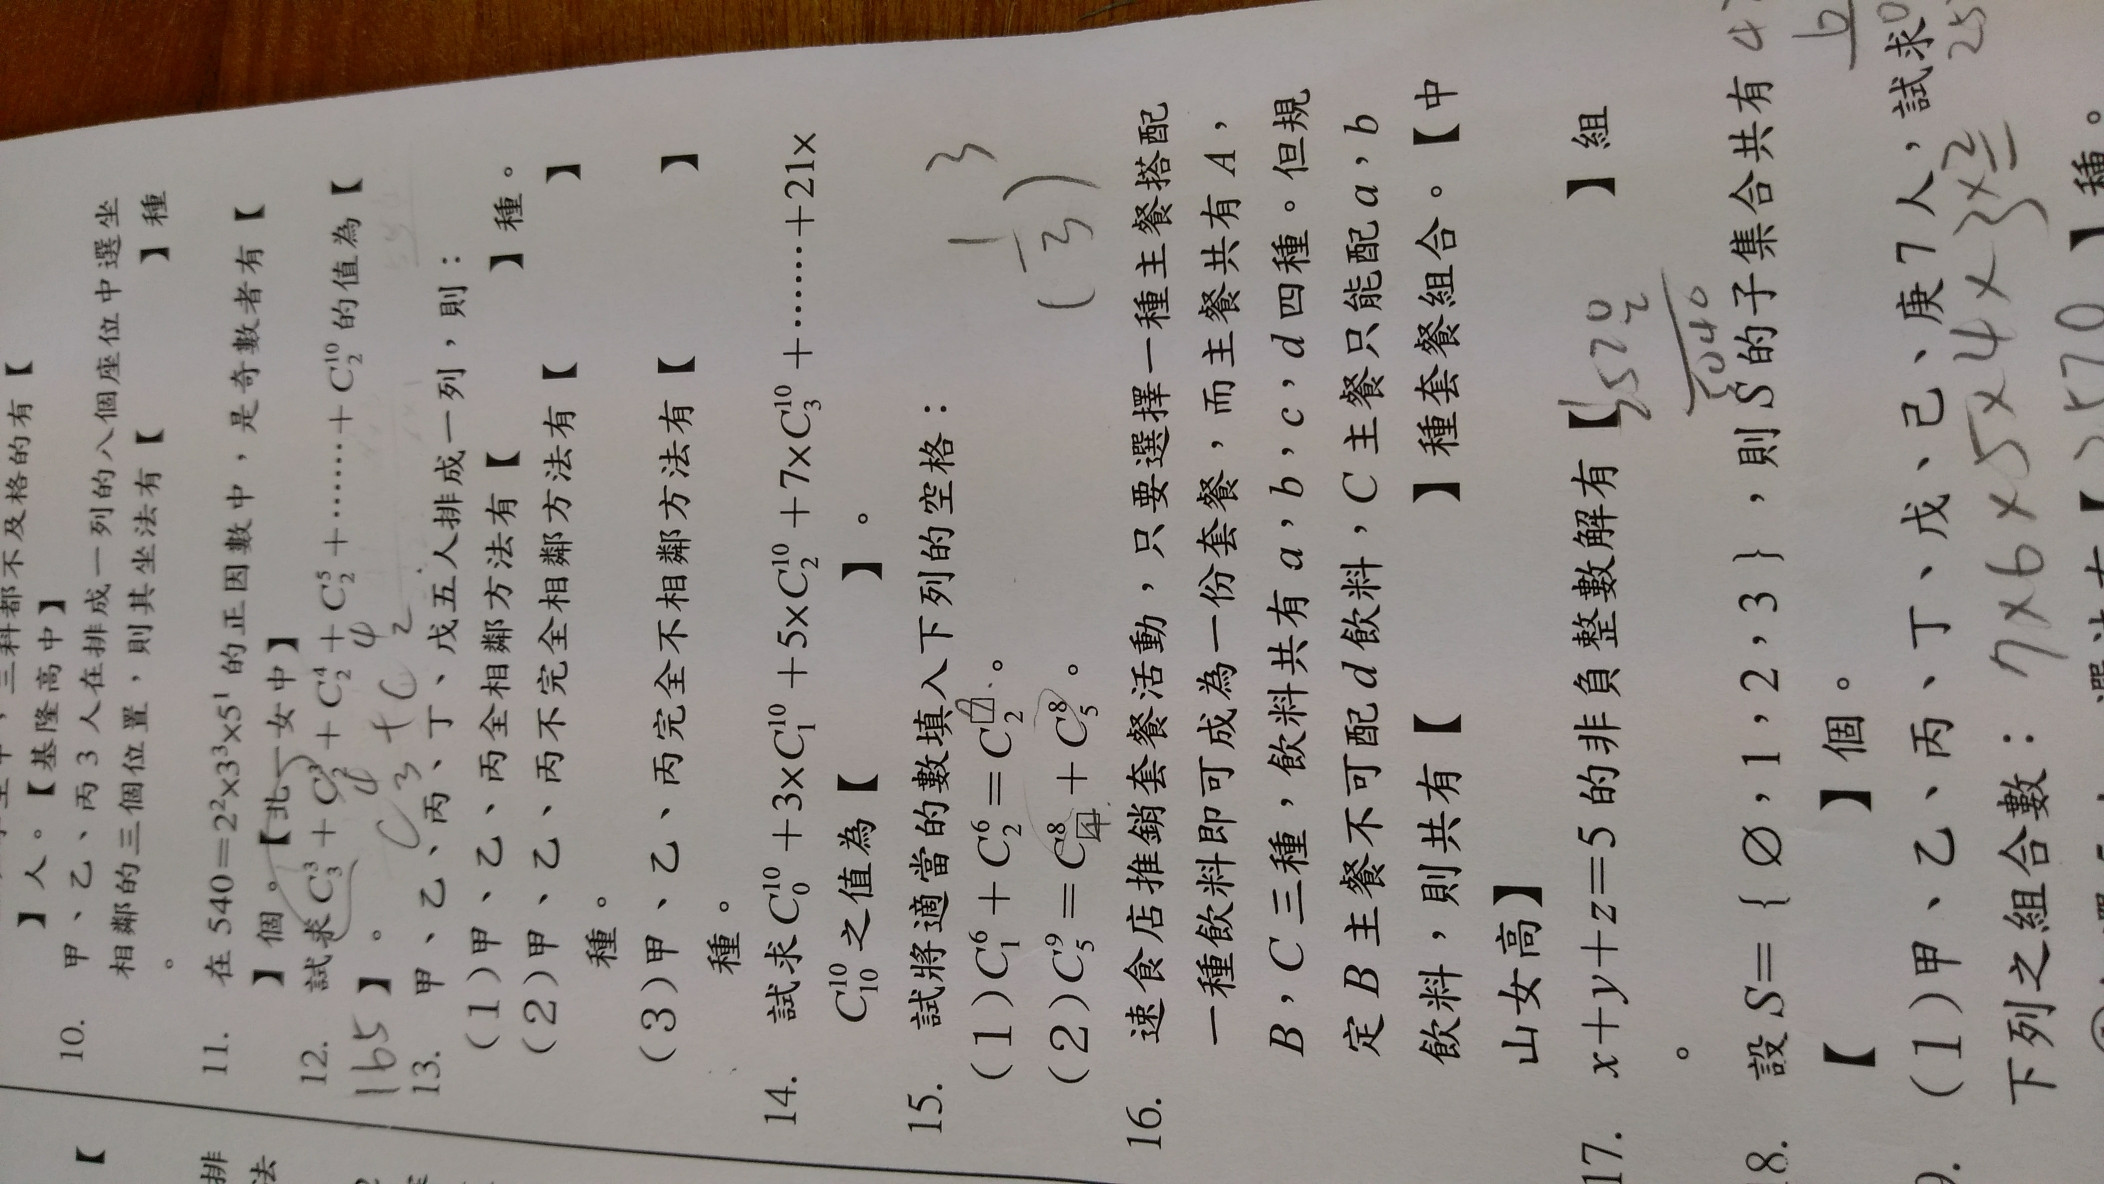 三科都不及格的有【
】人。【基隆高中】
10. 甲、乙、丙3人在排成一列的八個座位中選坐
相鄰的三個位置，則其坐法有【 】種
。
11. 在 540=2²×3³×5¹ 的正因數中，是奇數者有【
】個。【北一女中】
12. 試求 C₃³+C₂³+C₂⁴+C₂⁵+………+C₂¹⁰ 的值為【
165 】。
13. 甲、乙、丙、丁、戊五人排成一列，則：
(1)甲、乙、丙全相鄰方法有【 】種。
(2)甲、乙、丙不完全相鄰方法有【 】
種。
(3)甲、乙、丙完全不相鄰方法有【 】
種。
14. 試求 C₀¹⁰+3×C₁¹⁰+5×C₂¹⁰+7×C₃¹⁰+………+21×
C₁₀¹⁰ 之值為【 】。
15. 試將適當的數填入下列的空格：
(1)C₁⁶+C₂⁶=C₂⁷。
(2)C₅⁹=C₄⁸+C₅⁸。
16. 速食店推銷套餐活動，只要選擇一種主餐搭配
一種飲料即可成為一份套餐，而主餐共有 A，
B，C 三種，飲料共有 a，b，c，d 四種。但規
定 B 主餐不可配 d 飲料，C 主餐只能配 a，b
飲料，則共有【 】種套餐組合。【中
山女高】
17. x+y+z=5 的非負整數解有【 】組
。
18. 設 S={∅，1，2，3}，則 S 的子集合共有
【 】個。
9. (1)甲、乙、丙、丁、戊、己、庚 7 人，試求
下列之組合數：7×6×5×4×3×2